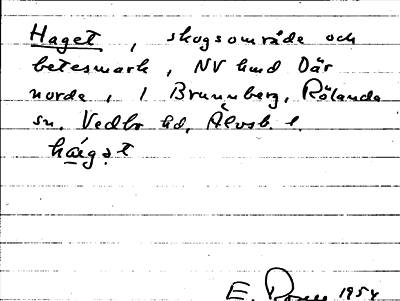 Haget, skogsområde och
betesmark, NV
norde, i Brunnberg, Rölanda
sn. Vedbo hd, Älvsb. l.
hágət
E. 1954